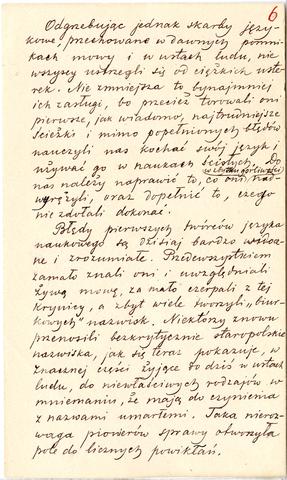 6
Odgrzebując jednak skarby języ-
kowe, przechowane w dawnych pomni-
kach mowy i w ustach ludu, nie
wszyscy ustrzegli się od ciężkich uste-
rek. Nie zmniejsza to bynajmniej
ich zasługi, bo przecież torowali oni
pierwsze, jak wiadomo, najtrudniejsze
ścieżki i mimo popełnionych błędów
nauczyli nas kochać swój język i
używać go w naukach ścisłych. Do
w zbytku gorliwości
nas należy naprawić to, co oni
oraz dopełnić to, czego
nie zdołali dokonać.
Błędy pierwszych twórców języka
naukowego są dzisiaj bardzo widocz-
ne i zrozumiałe. Przedewszystkiem
zamało znali oni i uwzględniali
żywą mowę, za mało czerpali z tej
krynicy, a zbyt wiele tworzyli „biur-
kowych" nazwisk. Niektórzy znowu
przenosili bezkrytycznie staropolskie
nazwiska, jak się teraz pokazuje, w
znacznej części żyjące do dziś w ustach
ludu, do niewłaściwych rodzajów w
mniemaniu, że mają do czynienia
z nazwami umarłemi. Taka nieroz-
waga pionierów sprawy otworzyła
pole do licznych powikłań.